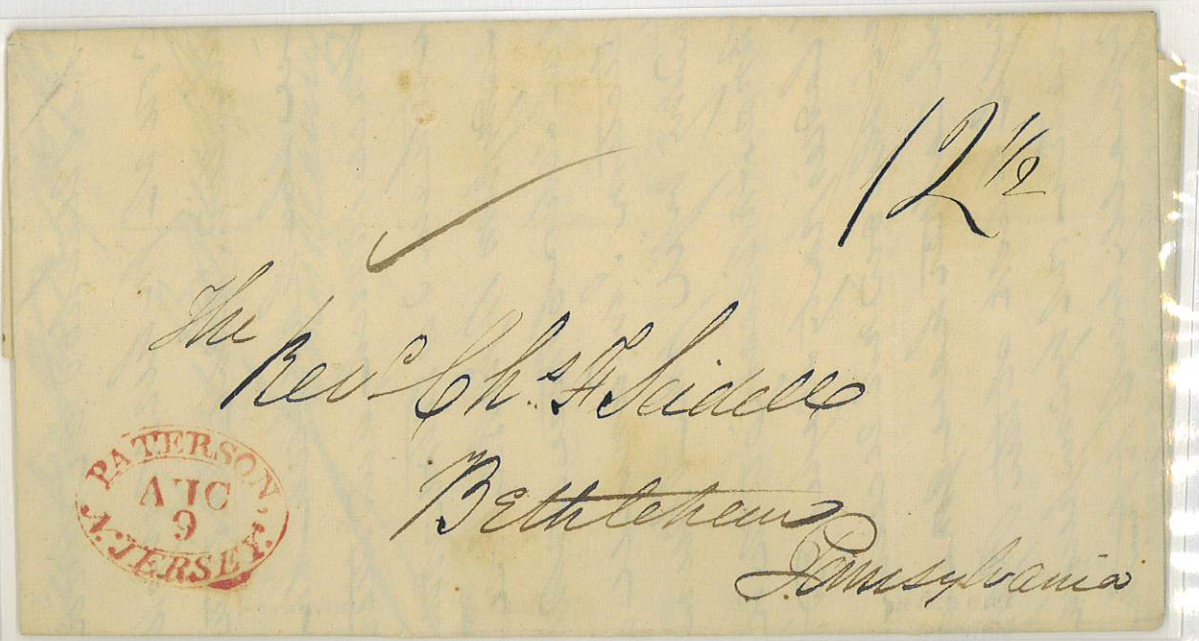 12 1/2
The
Revd Chs F Seidell
Bethlehem
Pennsylvania
PATERSON,
AUG
9
N. JERSEY.